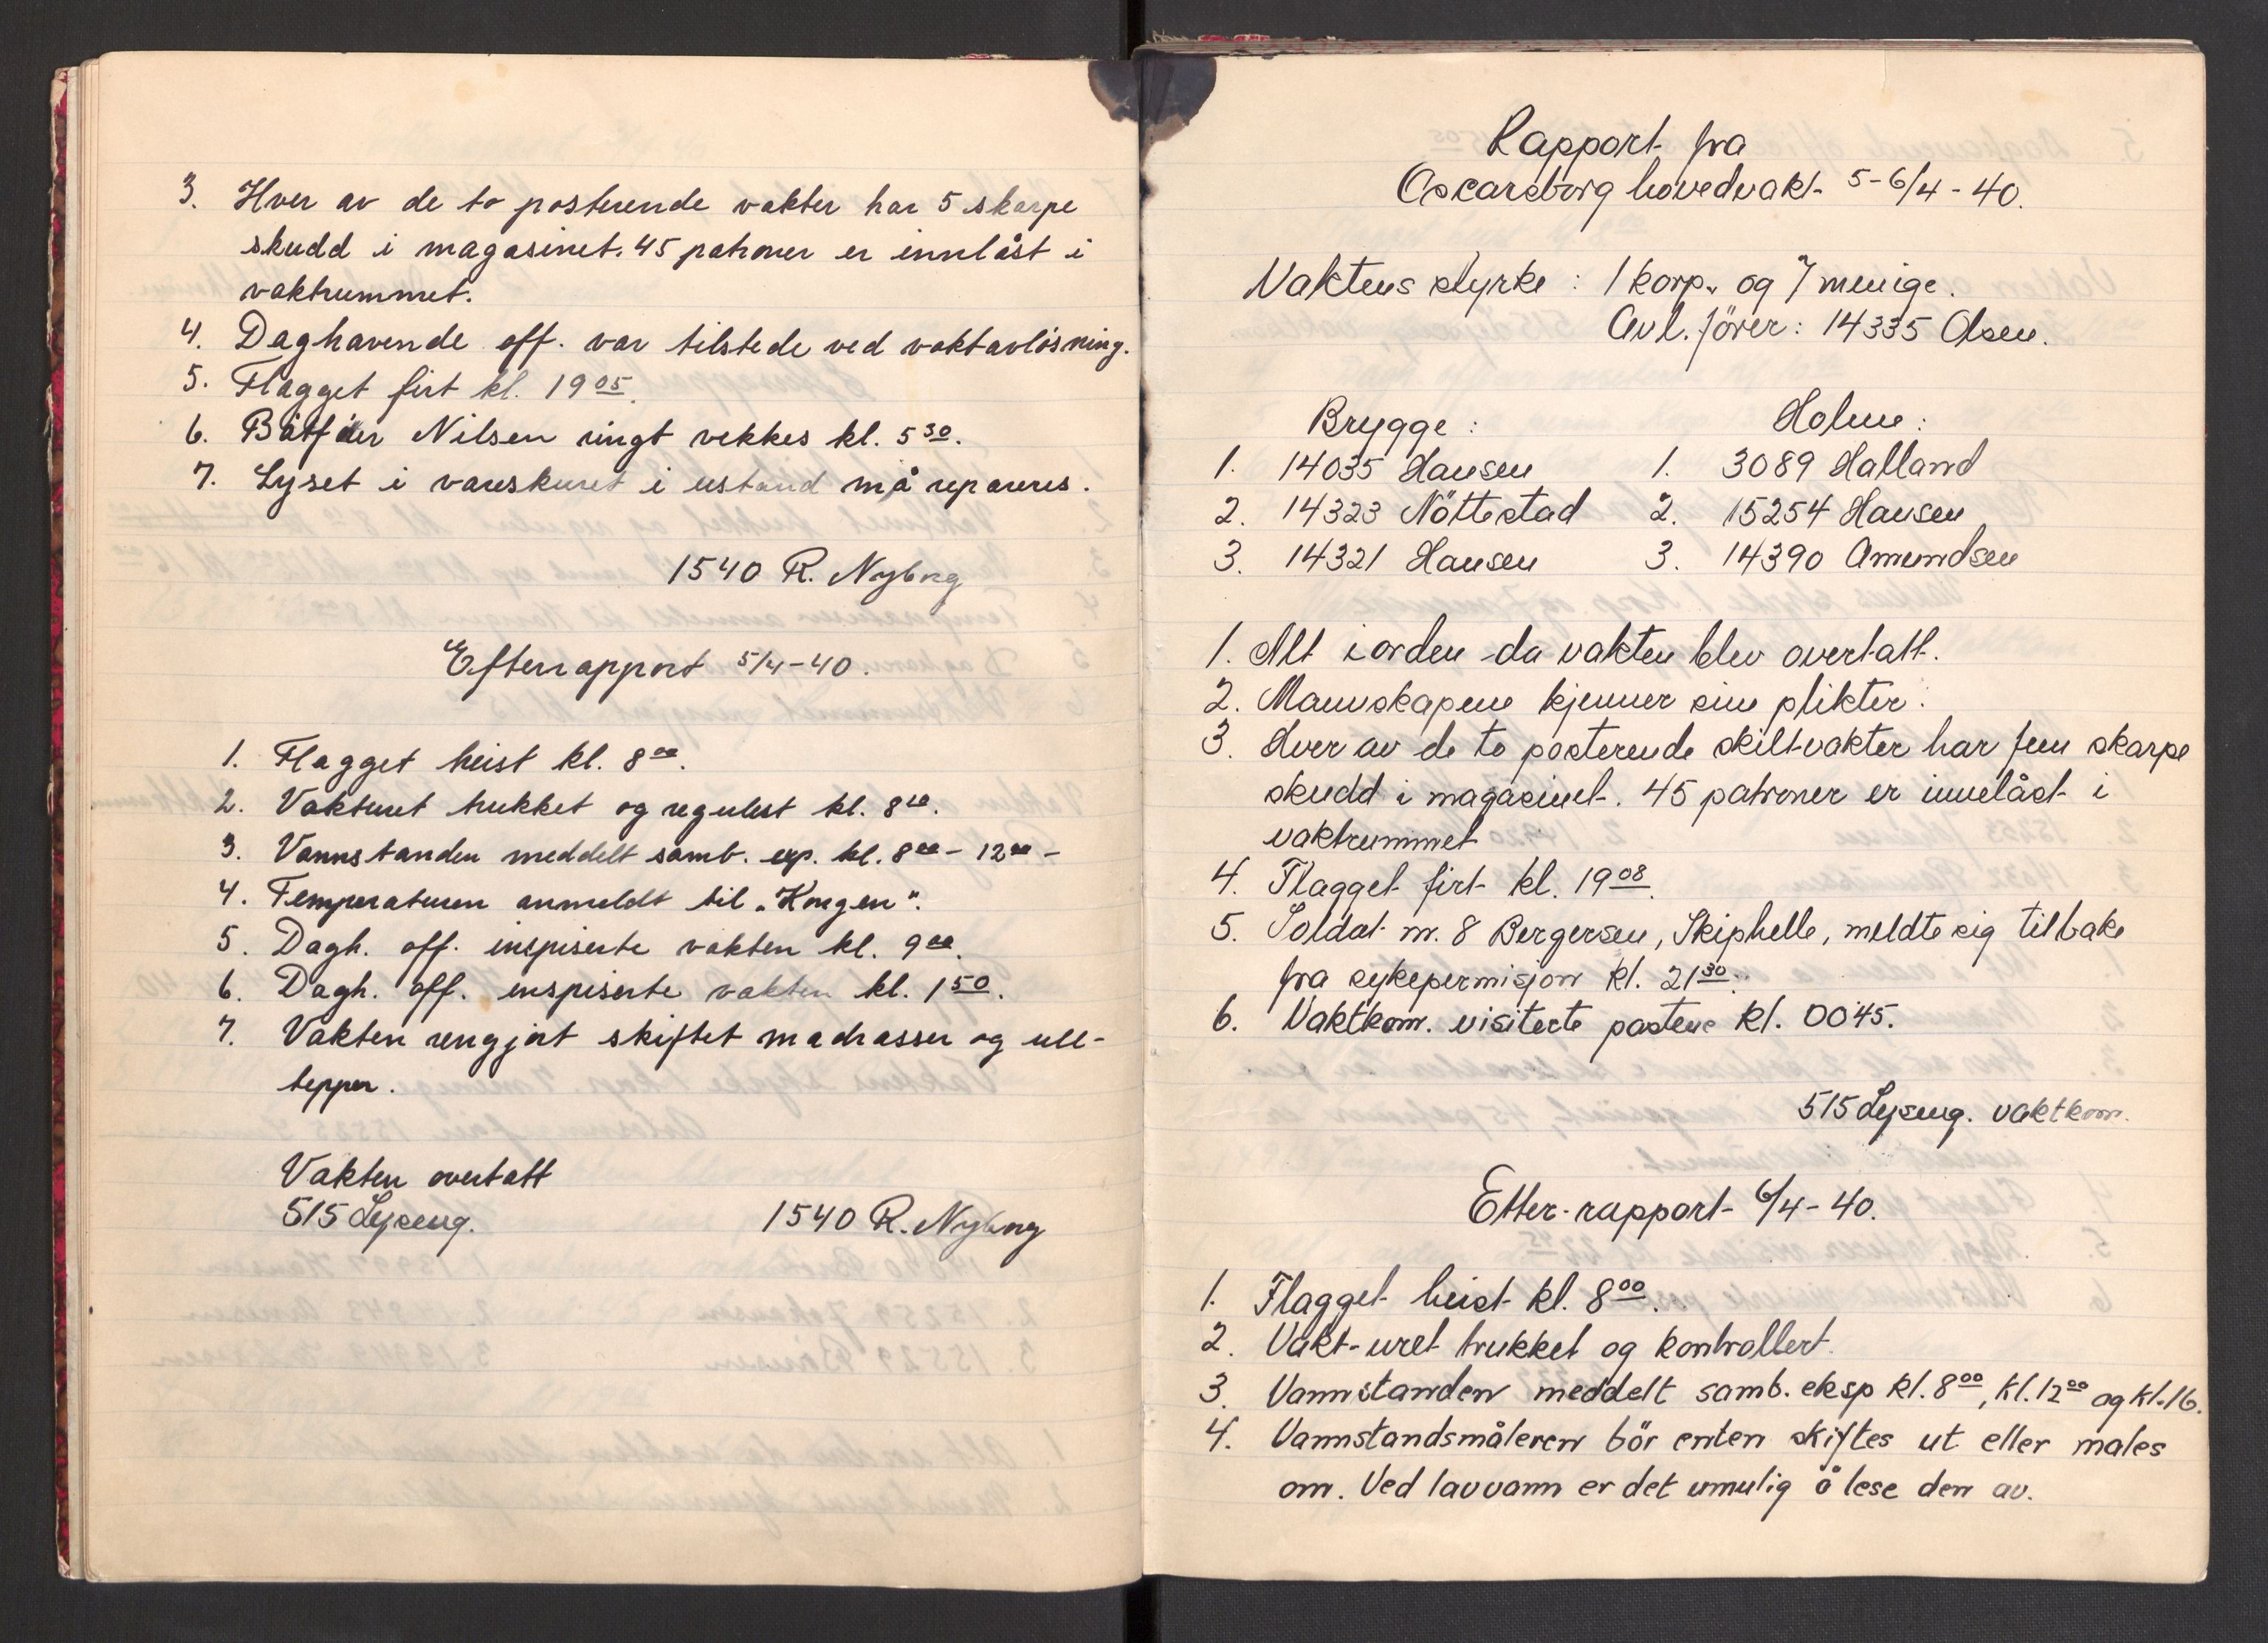 3. Hver av de to posterende vakter har 5 skarpe
skudd i magasinet. 45 patroner er innlåst i
vaktrummet.
4. Daghavende off. var tilstede ved vaktavløsning.
5. Flagget firt kl. 19 05.
6. Båtfører Nilsen ringt vekkes kl. 5 30.
7. Lyset i vareskuret i ustand må repareres.
1540 R. Nyborg
Efterrapport 5/4-40.
1. Flagget heist kl. 8 00.
2. Vakturet trukket og regulert kl. 8 10.
3. Vannstanden meddelt samb. exp. kl. 8 00 - 12 00 -
4. Temperaturen anmeldt til "Kongen".
5. Dagh. off. inspiserte vakten kl. 9 00.
6. Dagh. off. inspiserte vakten kl. 1 50.
7. Vakten rengjort skiftet madrasser og ull-
tepper.
Vakten overtatt
515 Lyseng. 1540 R. Nyborg
Rapport fra
Oscarsborg hovedvakt 5-6/4-40.
Vaktens styrke: 1 korp. og 7 menige.
Avl. förer: 14335 Olsen.
Brygge: Holme:
1. 14035 Hansen 1. 3089 Halland
2. 14323 Nöttestad 2. 15254 Hansen
3. 14321 Hansen 3. 14390 Amundsen
1. Alt i orden da vakten blev overtatt.
2. Mannskapene kjenner sine plikter.
3. Hver av de to posterende skiltvakter har fem skarpe
skudd i magasinet. 45 patroner er innelåst i
vaktrummet
4. Flagget firt kl. 19 08.
5. Soldat nr. 8 Bergersen, Skiphelle, meldte sig tilbake
fra sykepermisjon kl. 21 30.
6. Vaktkom. visiterte postene kl. 0045.
515 Lyseng. vaktkom.
Etter-rapport 6/4-40.
1. Flagget heist kl. 8 00.
2. Vakt-uret trukket og kontrollert.
3. Vannstanden meddelt samb. eksp kl. 8 00, kl. 12 00 og kl. 16.
4. Vannstandsmåleren bör enten skiftes ut eller males
om. Ved lavvann er det umulig å lese den av.